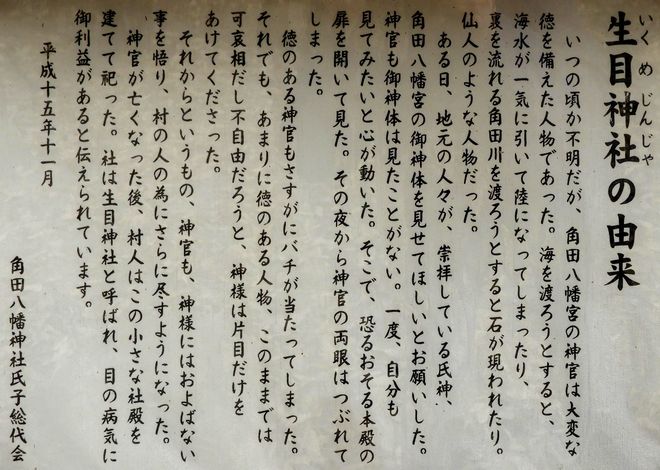 生目神社の由来
いくめじんじゃ
いつの頃か不明だが、角田八幡宮の神官は大変な
徳を備えた人物であった。海を渡ろうとすると、
海水が一気に引いて陸になってしまったり、
裏を流れる角田川を渡ろうとすると石が現われたり。
仙人のような人物だった。
ある日、地元の人々が、崇拝している氏神、
角田八幡宮の御神体を見せてほしいとお願いした。
神官も御神体は見たことがない。一度、自分も
見てみたいと心が動いた。そこで、恐るおそる本殿の
扉を開いて見た。その夜から神官の両眼はつぶれて
しまった。
徳のある神官もさすがにバチが当たってしまった。
それでも、あまりに徳のある人物、このままでは
可哀相だし不自由だろうと、神様は片目だけを
あけてくださった。
それからというもの、神官も、神様にはおよばない
事を悟り、村の人の為にさらに尽すようになった。
神官が亡くなった後、村人はこの小さな社殿を
建てて祀った。社は生目神社と呼ばれ、目の病気に
御利益があると伝えられています。
平成十五年十一月
角田八幡神社氏子総代会